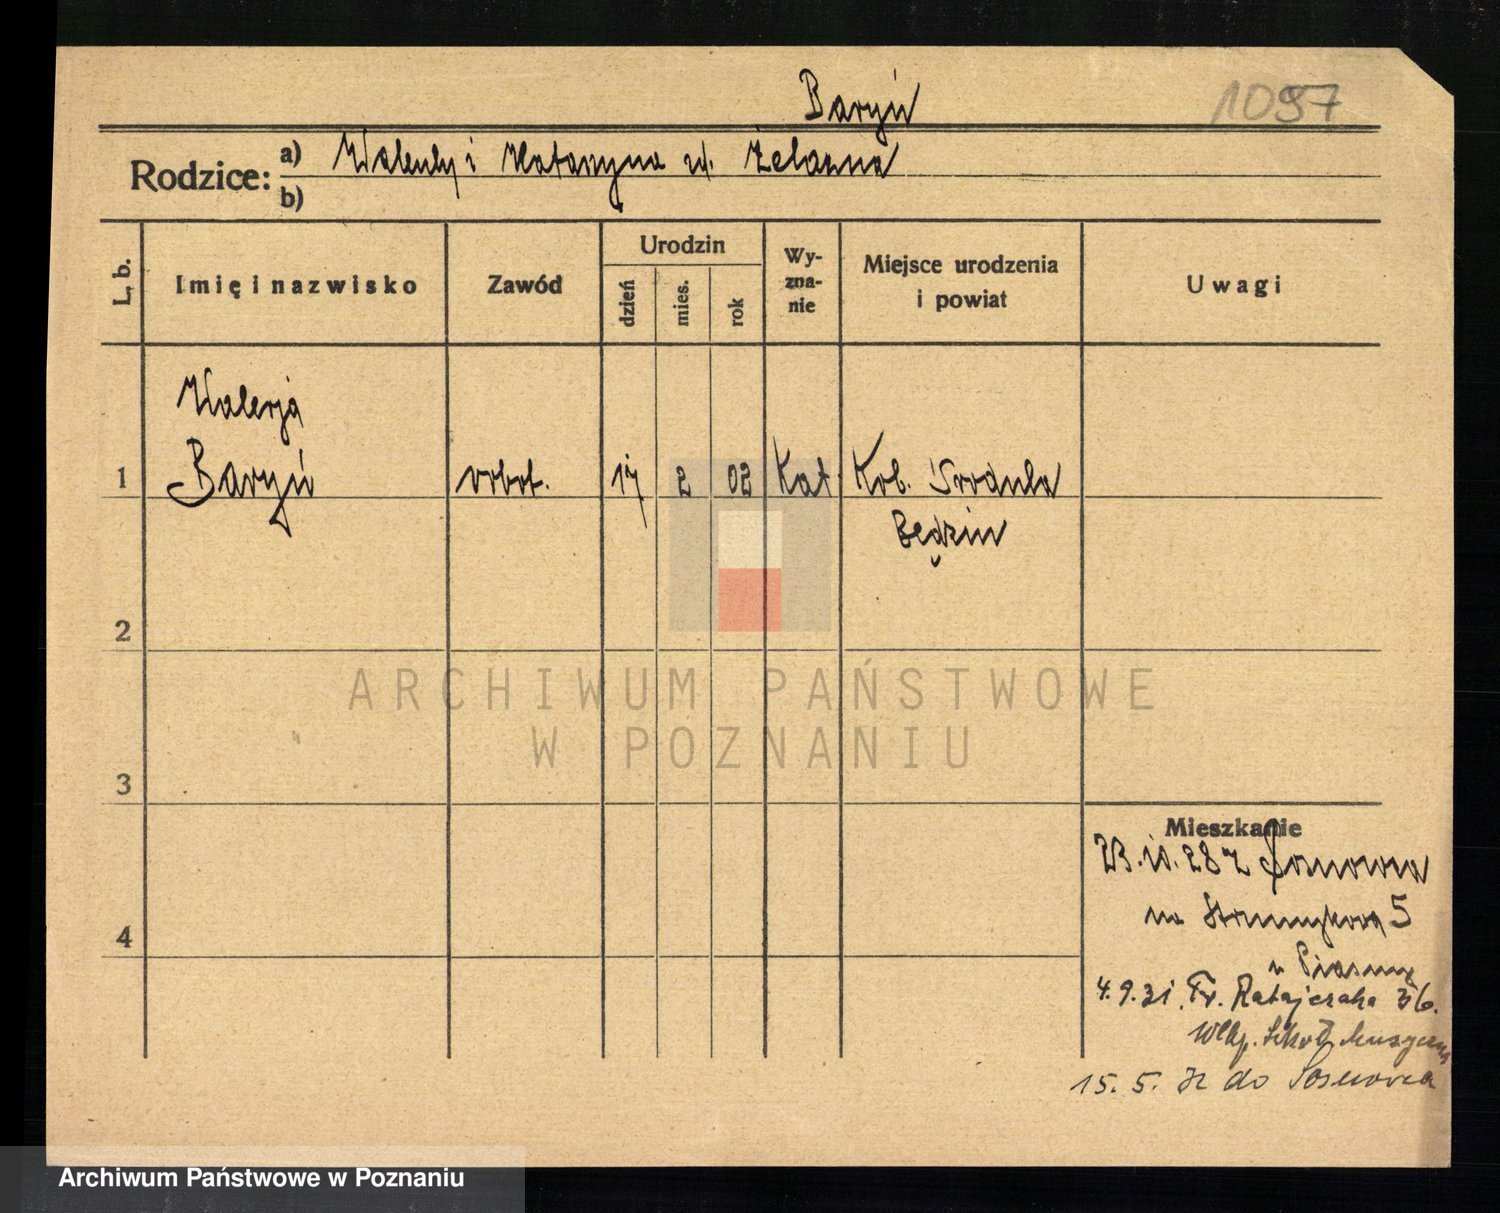 Baryń
1097
Rodzice:
a) Walenty i Katarzyna ur. Żelazna
b)
L. b.
Imię i nazwisko
Zawód
Urodzin
dzień
mies.
rok
Wy-
zna-
nie
Miejsce urodzenia
i powiat
Uwagi
Walerja
1 Baryń robot. 17 2 02 Kat Kol. Środula
Będzin
2
3
4
Mieszkanie
23.10.28 z Sosnowca
na 5
u
4.9.31. Fr. Ratajczaka 36.
Wlkp. Szkoł. Muzyczna
15. 5. 32 do Sosnowca
ARCHIWUM PAŃSTWOWE
W POZNANIU
Archiwum Państwowe w Poznaniu